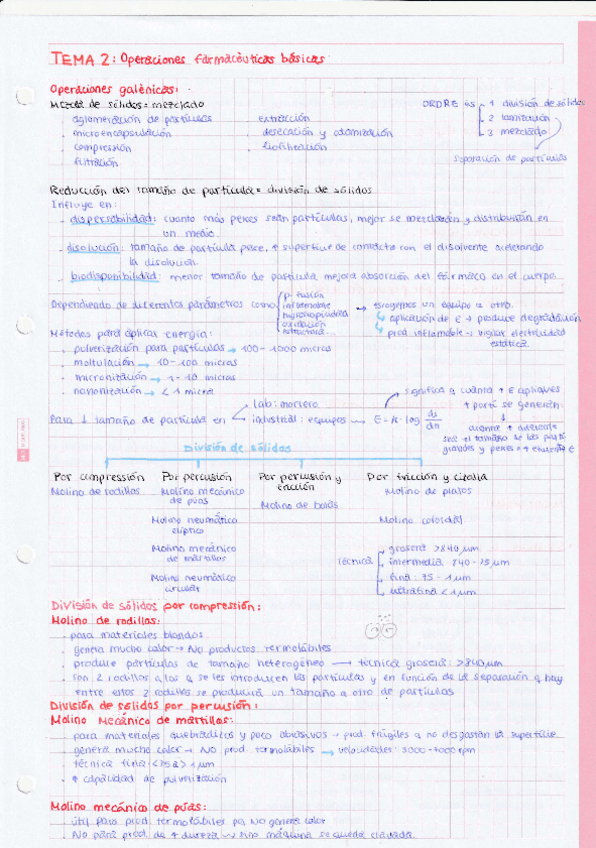 TEMA 2: Operaciones farmacéuticas básicas
Operaciones galénicas:
Mezcla de sólidos = mezclado
. aglomeración de partículas . extracción
. microencapsulación . desecación y atomización
. compresión . liofilización
. filtración
ORDRE 4s
1 división de sólidos
2 tamización
3 mezclado
separación de partículas
Reducción del tamaño de partícula = división de sólidos
Influye en:
. dispersabilidad: cuanto más peques sean partículas, mejor se mezclarán y distribuirán en
un medio.
. disolución: tamaño de partícula peke, ↑ superficie de contacto con el disolvente acelerando
la disolución
. biodisponibilidad: menor tamaño de partícula mejora absorción del fármaco en el cuerpo
Dependiendo de diferentes parámetros como
p. fusión
inflamable
higroscopicidad
oxidación
→ escogemos un equipo u otro.
aplicación de E → produce degradación
prod. inflamable → vigilar electricidad
estática
Métodos para aplicar energía:
. pulverización para partículas → 100 - 1000 micras
. → 10 - 100 micras
. micronización → 1 - 10 micras
. nanonización → < 1 micra
Para ↓ tamaño de partícula en
lab: mortero
industrial: equipos → E = K · log
significa q cuánta + E apliques
+ partí se generan.
cuanto + diferente
sea el tamaño de las partí
grandes y peques = +
División de sólidos
Por compresión Por percusión Por percusión y fricción Por fricción y cizalla
Molino de rodillos Molino mecánico de púas Molino de bolas Molino de platos
Molino neumático elíptico Molino coloidal
Molino mecánico de martillos
Molino neumático circular
Técnica
grosera >840 µm
intermedia 840 - 75 µm
fina: 75 - 1 µm
ultrafina < 1 µm
División de sólidos por compresión:
Molino de rodillos:
. para materiales blandos
. genera mucho calor → No productos termolábiles
. produce partículas de tamaño heterogéneo → técnica grosera: >840 µm
. son 2 rodillos a los q se les introducen las partículas y en función de la separación q hay
entre estos 2 rodillos se producirá un tamaño u otro de partículas
División de sólidos por percusión:
Molino Mecánico de martillos:
. para materiales quebradizos y poco abrasivos → prod. frágiles q no desgastan la superficie
. genera mucho calor → NO prod. termolábiles → velocidades: 3000-7000 rpm
. técnica fina <75 a > 1 µm
. ↑ capacidad de pulverización
Molino mecánico de púas:
. útil para prod. termolábiles pq NO genera calor
. No para prod. de ↑ dureza → sino máquina se queda clavada.